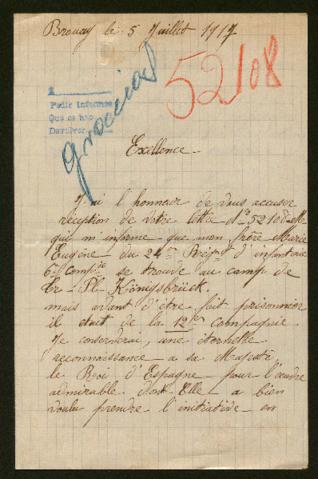 Brouay le 5 Juillet 1917
52108
gracias
Pedir informes
Excellence
J'ai l'honneur de vous accuser
réception de votre lettre No 52108
qui m'informe que mon frère Marie
Eugène du 24me Régt d'infanterie
6e Compie se trouve au camp de
Königsbrück,
mais avant d'être fait prisonnier
il était de la 12me compagnie.
Je conserverai, une éternelle
reconnaissance a sa Majesté
le Roi d'Espagne pour l'œuvre
admirable dont Elle a bien
voulu prendre l'initiative en